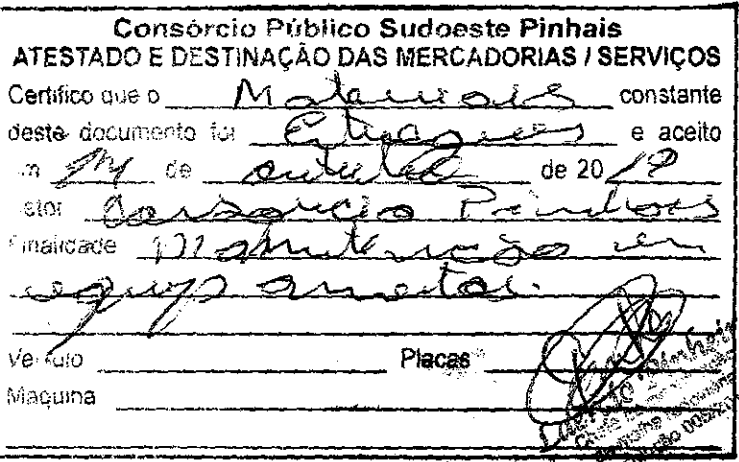 Consórcio Público Sudoeste Pinhais
ATESTADO E DESTINAÇÃO DAS MERCADORIAS / SERVIÇOS
Certifico que o Materiais constante
deste documento foi Entregues e aceito
em de outubro de 20
setor Consorcio Pinhais
Finalidade Manutenção em
equipamentos.
Veículo Placas
Maquina